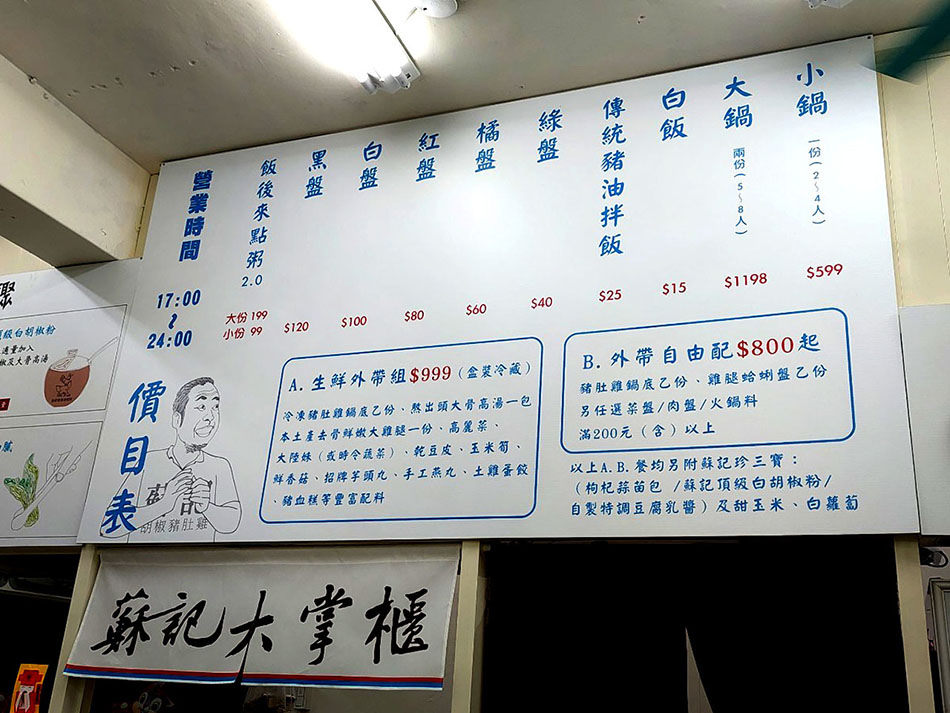 小鍋 一份(2~4人) $599
大鍋 兩份(5~8人) $1198
白飯 $15
傳統豬油拌飯 $25
綠盤 $40
橘盤 $60
紅盤 $80
白盤 $100
黑盤 $120
飯後來點粥2.0 大份 199
小份 99
營業時間
17:00
~
24:00
價目表
蘇記
胡椒豬肚雞
A. 生鮮外帶組$999(盒裝冷藏)
冷凍豬肚雞鍋底乙份、熬出頭大骨高湯一包
本土產去骨鮮嫩大雞腿一份、高麗菜、
大陸妹(或時令蔬菜)、乾豆皮、玉米筍、
鮮香菇、招牌芋頭丸、手工燕丸、土雞蛋餃
、豬血糕等豐富配料
B. 外帶自由配$800起
豬肚雞鍋底乙份、雞腿蛤蜊盤乙份
另任選菜盤/肉盤/火鍋料
滿200元(含)以上
以上A.B.餐均另附蘇記珍三寶:
(枸杞蒜苗包 /蘇記頂級白胡椒粉/
自製特調豆腐乳醬)及甜玉米、白蘿蔔
級白胡椒粉
適量加入
椒及大骨高湯
蘇記大掌櫃